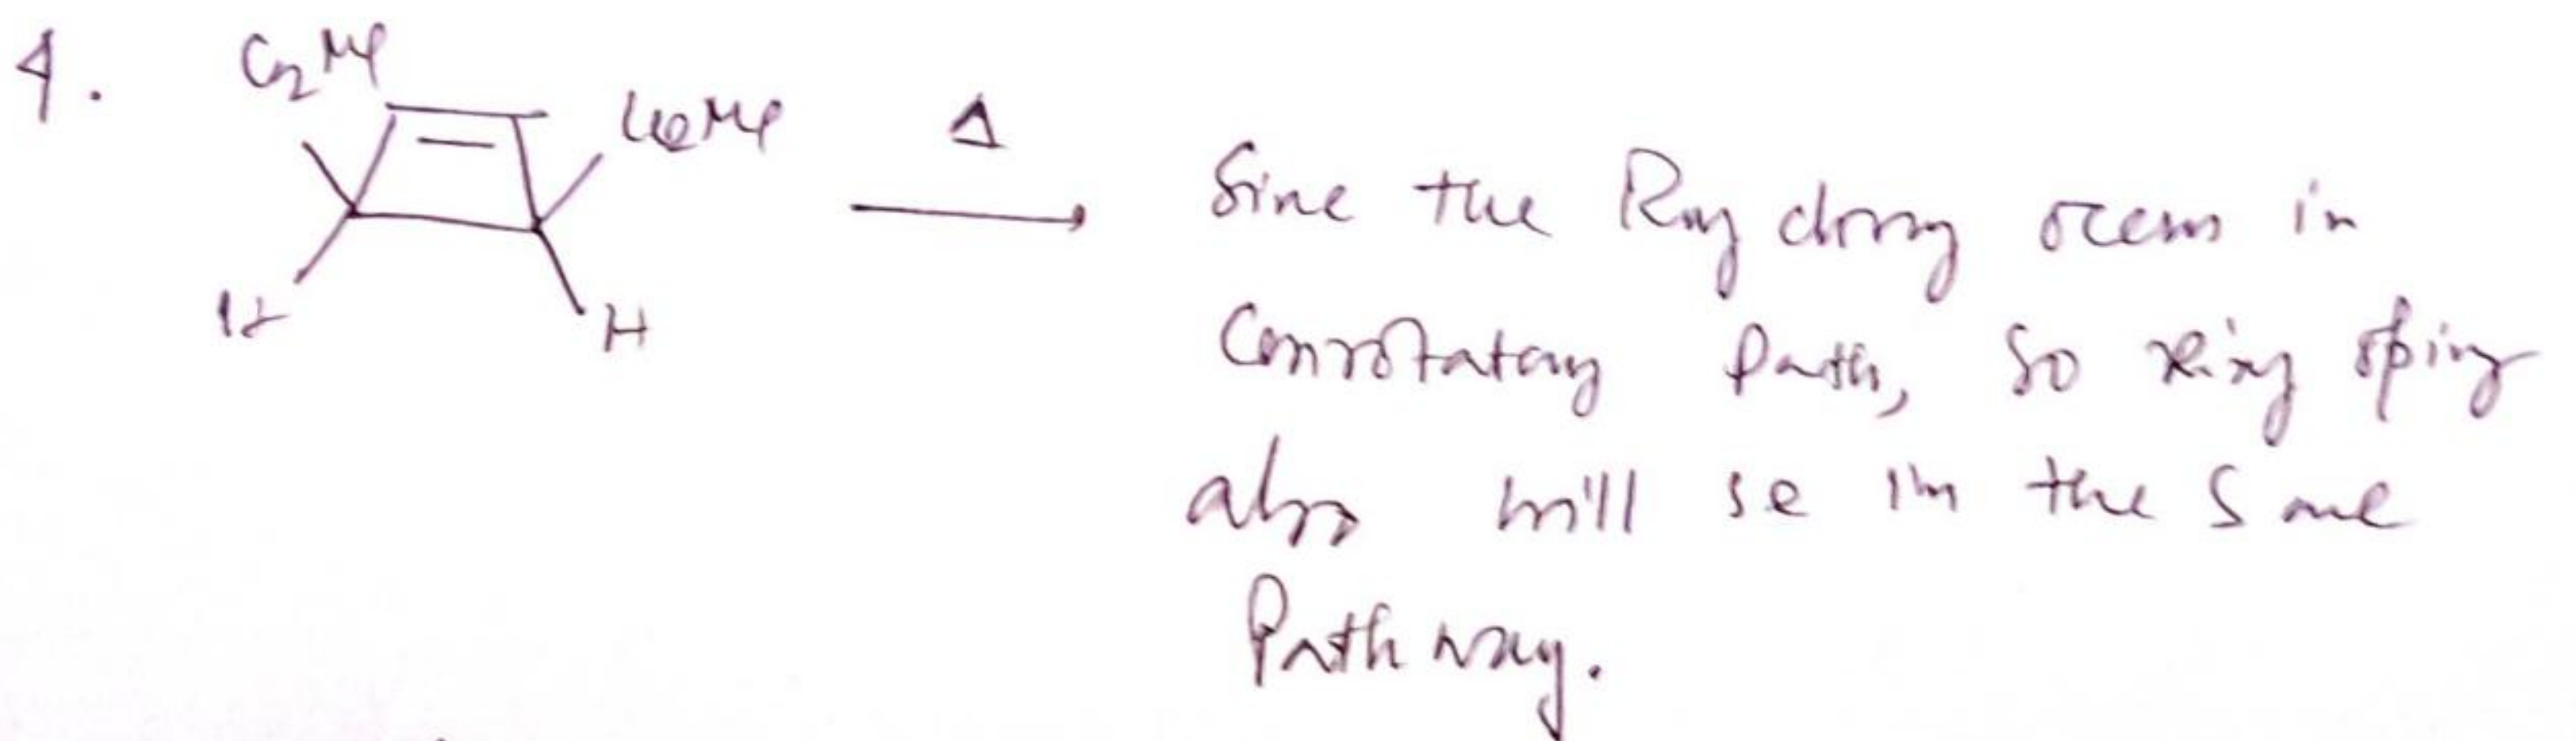 4.
CO2Me
CO2Me
Δ
H
H
Since the Ring closing occurs in
Conrotatory Path, so ring oping
also will be in the same
Pathway.